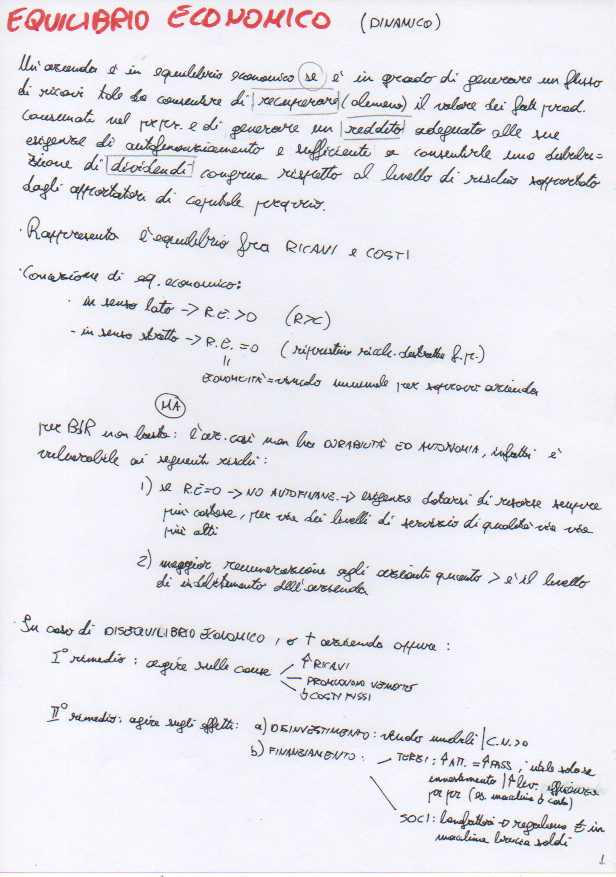 EQUILIBRIO ECONOMICO (DINAMICO)
Un'azienda è in equilibrio economico se è in grado di generare un flusso
di ricavi tale da consentire di recuperare (almeno) il valore dei fatt. prod.
consumati nel pr.pr. e di generare un reddito adeguato alle sue
esigenze di autofinanziamento e sufficiente a consentirle una distribu=
zione di dividendi congrua rispetto al livello di rischio sopportato
dagli apportatori di capitale proprio.
· Rappresenta l'equilibrio fra RICAVI e COSTI
· Concezione di eq. economico:
· in senso lato -> R.E. > 0 (R>C)
- in senso stretto -> R.E. = 0 (ripristino ricch. distrutta f.p.)
=
ECONOMICITÀ = vincolo minimale per sopravv. azienda
MA
per B&R non basta: l'az. così non ha DURABILITÀ ED AUTONOMIA, infatti è
vulnerabile ai seguenti rischi:
1) se R.E=0 -> NO AUTOFINANZ. -> esigenza dotarsi di risorse sempre
più costose, per via dei livelli di servizio di qualità via via
più alti
2) maggior remunerazione agli azionisti quanto > è il livello
di indebitamento dell'azienda
· In caso di DISEQUILIBRIO ECONOMICO, o † azienda oppure:
I° rimedio: agire sulle cause
↑ RICAVI
PROMUOVO VENDITE
↓ COSTI FISSI
II° rimedio: agire sugli effetti: a) DISINVESTIMENTO: vendo | C.N.>0
b) FINANZIAMENTO: TERZI: ↑ ATT. = ↑ PASS, utile solo se
investimento | ↑ liv. efficienza
pr.pr (es. macchina ↓ costi)
SOCI: -> regalano € in
macchina brucia soldi
1